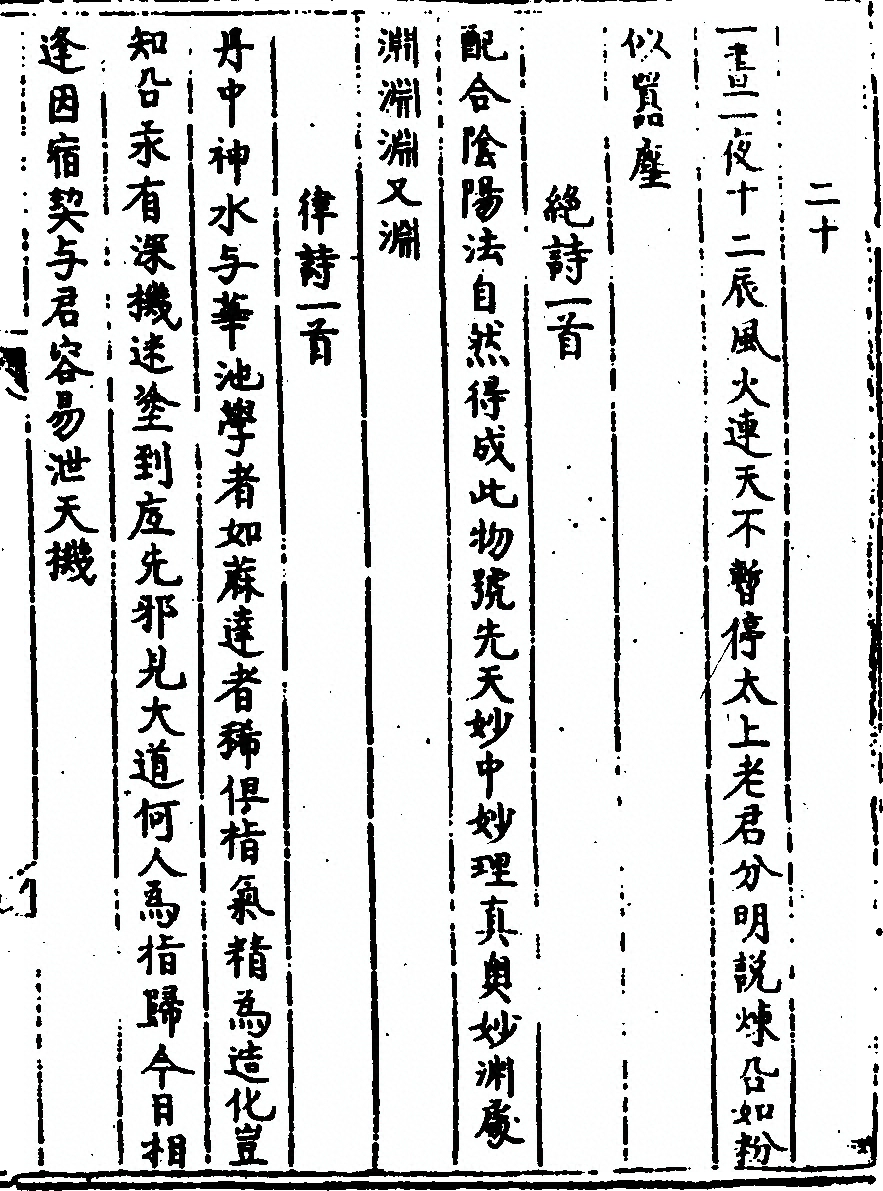 二十
一晝一夜十二辰風火連天不暫停太上老君分明說煉㕣如粉
似嚣塵
絕詩一首
配合陰陽法自然得成此物號先天妙中妙理真奥妙渊處
淵淵淵又淵
律詩一首
丹中神水与華池學者如蔴達者稀俱指氣精為造化豈
知㕣汞有深機迷塗到㡳先邪見大道何人為指歸今日相
逢因宿契与君容易泄天機